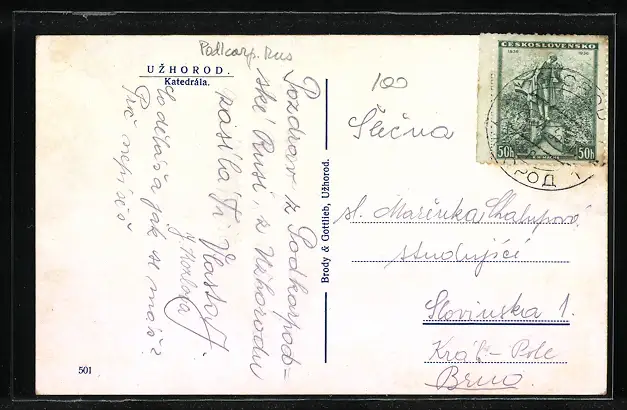 Podkarp. Rus
UŽHOROD.
Katedrála.
Pozdrav z Podkarpad-
ské Rusi, z Užhorodu
zasílá Ti Vlasta J.
Co děláš a jak se máš?
Proč nepíšeš
501
Brody & Gottlieb, Užhorod.
100
ČESKOSLOVENSKO
1836 1936
K.H. MÁCHA
50h 50h
Slečna
sl. Mařenka Chalupová
studující
Slovinska 1.
Král.-Pole
Brno.